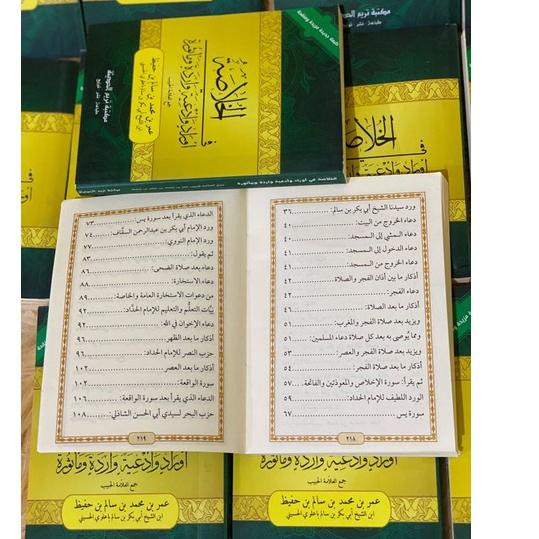 مكتبة تريم الحديثة
الخلاصة
في
أوراد وأدعية واردة ومأثورة
جمع العلامة الحبيب
عمر بن محمد بن سالم بن حفيظ
مكتبة تريم الحديثة
الخلاصة
في
ورد سيدنا الشيخ أبي بكر بن سالم: ٣٦
دعاء الخروج من البيت: ٤٠
دعاء المشي إلى المسجد: ٤٠
دعاء الدخول إلى المسجد: ٤١
دعاء الخروج من المسجد: ٤١
أذكار ما بين أذان الفجر والصلاة ٤٢
دعاء الفجر: ٤٢
أذكار ما بعد الصلاة: ٤٦
ويزيد بعد صلاة الفجر والمغرب: ٥١
ومما يُوصى به بعد كل صلاة دعاء المسلمين: ٥١
ويزيد بعد صلاة الفجر والعصر: ٥٣
أذكار ما بعد صلاة الفجر: ٥٤
ثم يقرأ: سورة الإخلاص والمعوذتين والفاتحة. ٥٧
الورد اللطيف للإمام الحداد: ٥٩
سورة يس ٦٧
٢١٨
الدعاء الذي يقرأ بعد سورة يس ٧٣
ورد الإمام أبي بكر بن عبدالرحمن السقّاف ٧٤
ورد الإمام النووي: ٧٧
ثم يقول: ٨٣
دعاء بعد صلاة الضحى: ٨٦
دعاء الاستخارة: ٨٨
من دعوات الاستخارة العامة والخاصة: ٨٩
نيّات التعلُّم والتعليم للإمام الحدَّاد: ٩٢
دعاء الإخوان في الله: ٩٢
أذكار ما بعد الظهر ٩٦
حزب النصر للإمام الحداد: ٩٦
أذكار ما بعد العصر ١٠٢
سورة الواقعة: ١٠٢
الدعاء الذي يقرأ بعد سورة الواقعة: ١٠٦
حزب البحر لسيدي أبي الحسن الشاذلي: ١٠٨
٢١٩
أوراد وأدعية واردة ومأثورة
جمع العلامة الحبيب
عمر بن محمد بن سالم بن حفيظ
ابن الشيخ أبي بكر بن سالم باعلوي الحسيني
أوراد وأدعية واردة ومأثورة
جمع العلامة الحبيب
عمر بن محمد بن سالم بن حفيظ
ابن الشيخ أبي بكر بن سالم باعلوي الحسيني